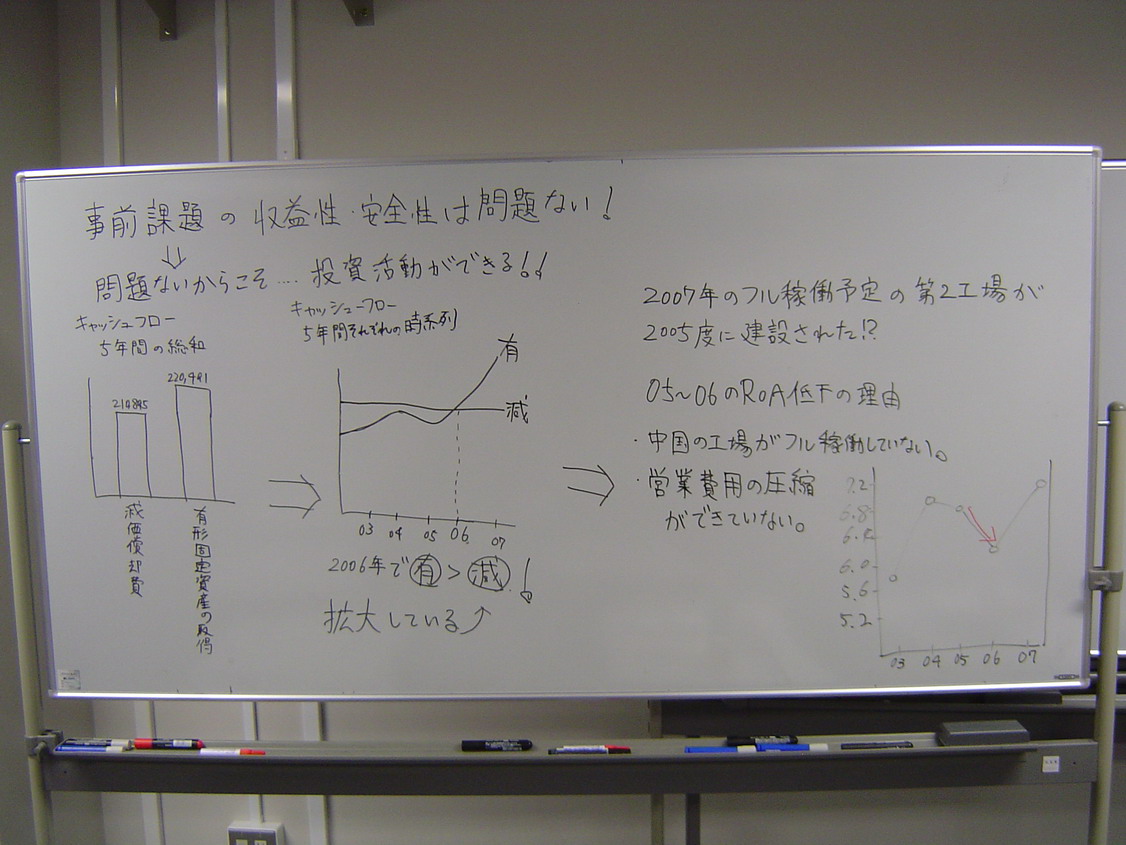 事前課題の収益性・安全性は問題ない!
⇓
問題ないからこそ....投資活動ができる!!
キャッシュフロー
5年間の総和
220,491
減価償却費
有形固定資産の取得
キャッシュフロー
5年間それぞれの時系列
有
減
03 04 05 06 07
2006年で有>減!
拡大している
2007年のフル稼働予定の第2工場が
2005度に建設された!?
05~06のRoA低下の理由
・中国の工場がフル稼働していない。
・営業費用の圧縮
ができていない。
7.2
6.8
6.0
5.6
5.2
03 04 05 06 07